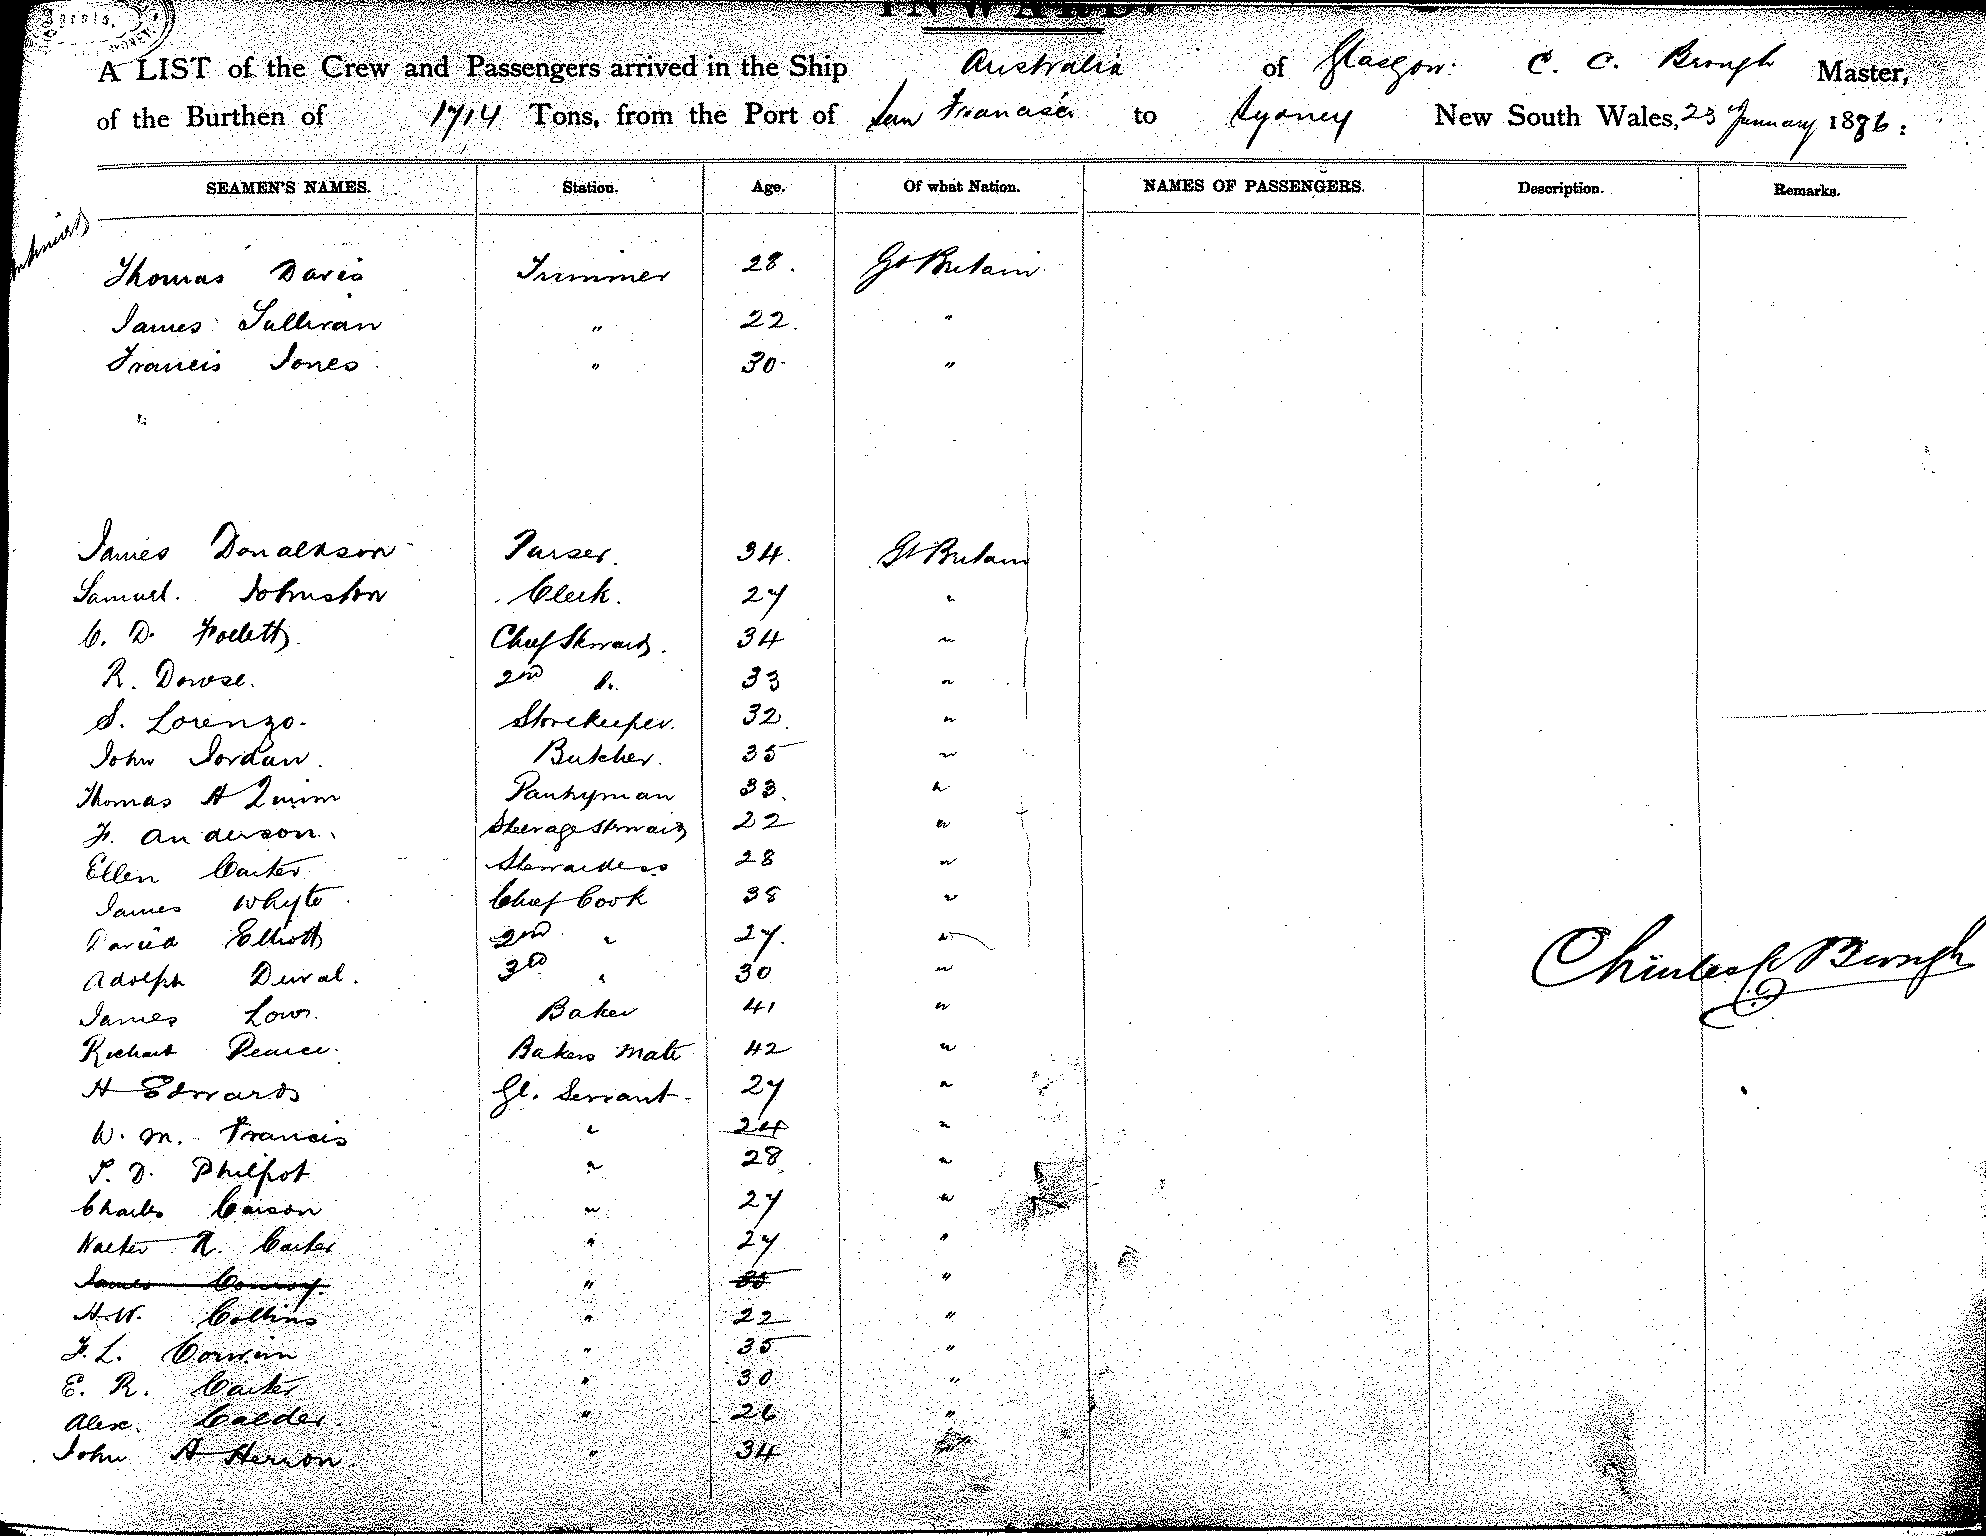 INWARD.
A LIST of the Crew and Passengers arrived in the Ship Australia of Glasgow. C. C. Brough Master,
of the Burthen of 1714 Tons, from the Port of San Francisco to Sydney New South Wales, 23 January 1886:
SEAMEN'S NAMES. Station. Age. Of what Nation. NAMES OF PASSENGERS. Description. Remarks.
Thomas Davis Trimmer 28. Gt Britain
James Sullivan " 22. "
Francis Jones " 30. "
James Donaldson Purser. 34. Gt Britain
Samuel Johnston Clerk. 27 "
C. D. Chief Steward. 34 "
R. Dowse. 2nd Do. 33 "
S. Lorenzo. Storekeeper. 32. "
John Jordan. Butcher. 35 "
Thomas A Quinn Pantryman 33. "
F. Anderson. Steerage Steward 22 "
Ellen Carter Stewardess 28 "
James Whyte Chief Cook 38 "
David Elliott 2nd " 27. "
Adolph Duval. 3rd " 30 "
James Low. Baker 41 "
Richard Pearce. Bakers Mate 42 "
H Edwards Gl. Servant 27 "
W. M. Francis " 24 "
S. D. Philpot " 28 "
Charles Carson " 27 "
Walter R. Carter " 27 "
James Conroy. " 35 "
H. W. Collins " 22 "
F. L. Corwin " 35 "
E. R. Carter " 30 "
Alex. Calder. " 26 "
John A Herron. " 34 "
Charles C Brough